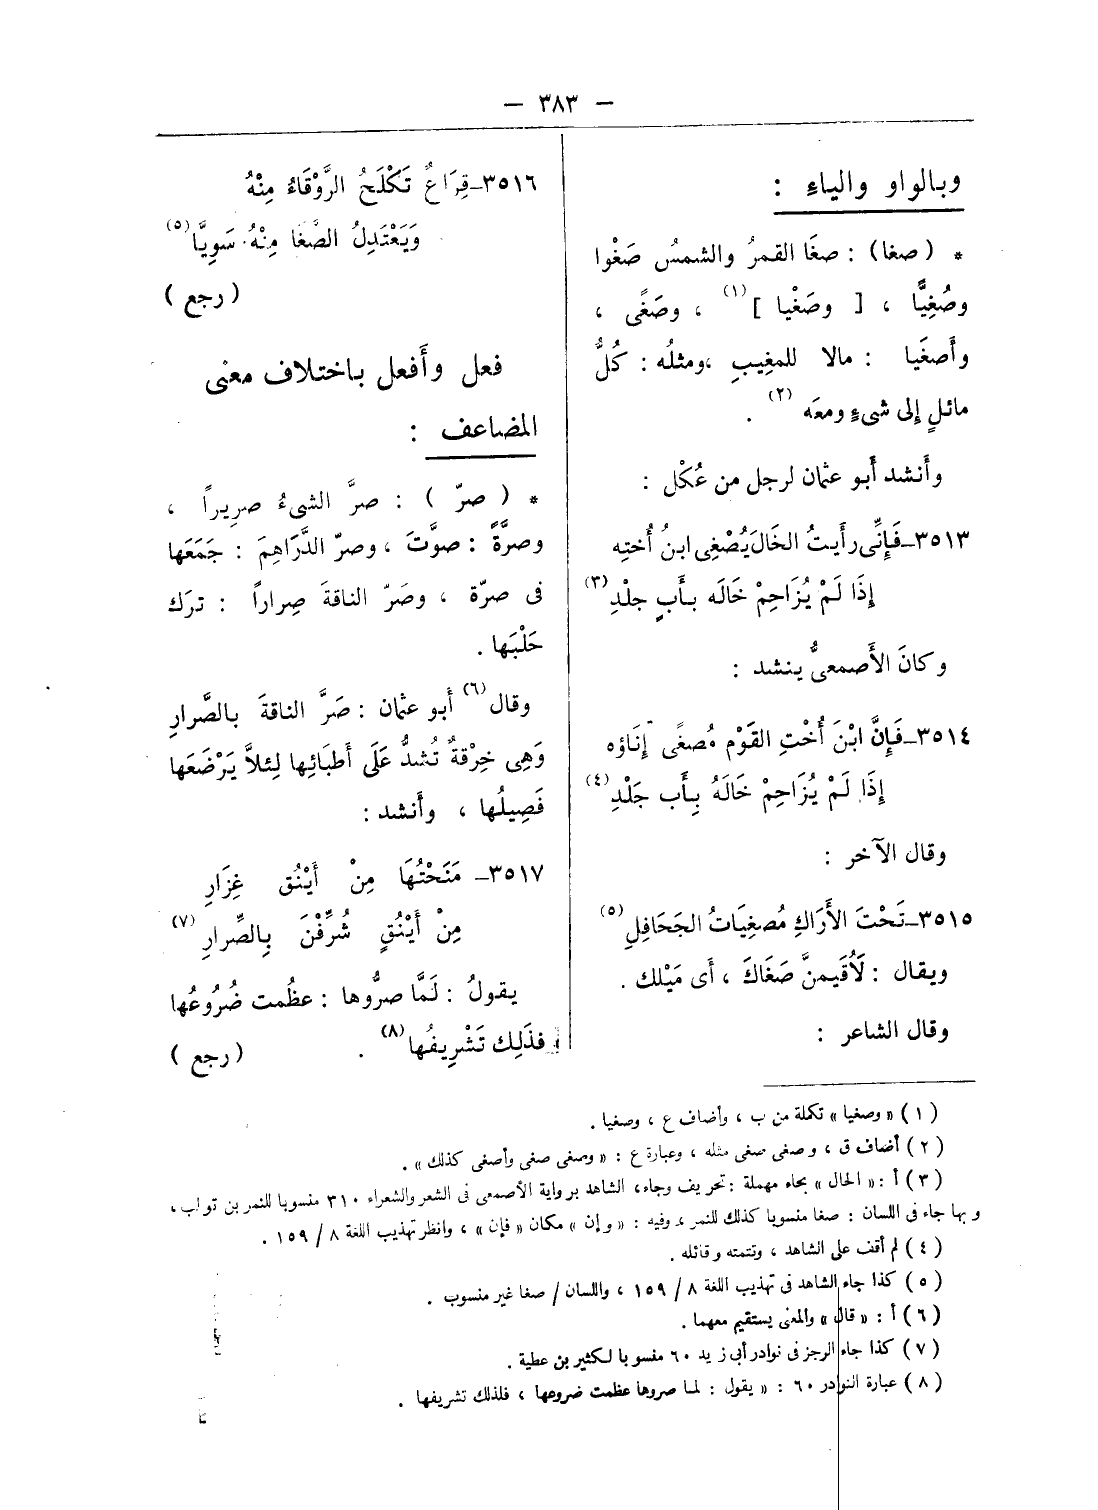 — ٣٨٣ —
وبالواو والياءِ :
* (صغا) : صغَا القمرُ والشمسُ صَغْوا
وصُغِيًّا ، [ وصَغْيا ] (١) ، وصَغًى ،
وأَصغَيا : مالا للمغِيبِ ،ومثلُه : كُلُّ
مائلٍ إِلى شىءٍ ومعَه (٢) .
وأَنشد أَبو عثمان لرجل من عُكْل :
٣٥١٣ــ فَإِنِّى رأَيتُ الخَالَ يُصْغِى ابنُ أُختِه
إِذَا لَمْ يُزَاحِمْ خَالَه بأَبٍ جلْدِ (٣)
وكانَ الأَصمعىُّ ينشد :
٣٥١٤ــ فَإِنَّ ابْنَ أُخْتِ القَوْم مُصغًى إِنَاؤه
إِذَا لَمْ يُزَاحِمْ خَالَهُ بِأَب جَلْدِ (٤)
وقال الآخر :
٣٥١٥ــ تَحْتَ الأَرَاكِ مُصغِيَاتُ الجَحَافِلِ (٥)
ويقال : لَأُقَيمنَّ صَغَاكَ ، أَى مَيْلك .
وقال الشاعر :
٣٥١٦ــ قِرَاعٌ تَكْلَحُ الرَّوْقَاءُ مِنْهُ
وَيَعْتَدِلُ الصَّغَا مِنْهُ سَوِيَّا (٥)
( رجع )
فعل وأَفعل باختلاف معنى
المضاعف :
* ( صرّ ) : صرَّ الشىءُ صرِيراً ،
وصرَّةً : صوَّتَ ، وصرّ الدَّرَاهِمَ : جَمَعَها
فى صرّة ، وصَرّ الناقةَ صِراراً : ترَك
حَلْبَها .
وقال (٦) أَبو عثمان : صَرَّ الناقةَ بالصَّرارِ
وَهِى خِرْقةٌ تُشدُّ عَلَى أَطبَائِها لِئلاَّ يَرْضَعَها
فَصِيلُها ، وأَنشد :
٣٥١٧ــ مَنَحْتُهَا مِنْ أَيْنُق غِزَارِ
مِنْ أَيْنُقٍ شُرِّفْنَ بِالصِّرارِ (٧)
يقولُ : لَمَّا صرُّوها : عظُمت ضُرُوعُها
فذَلِك تَشْرِيفُها (٨) .
( رجع )
(١) « وصغيا » تكملة من ب ، وأضاف ع ، وصغيا .
(٢) أضاف ق ، وصغى صغى مثله ، وعبارة ع : « وصغى صغى وأصغى كذلك » .
(٣) أ : « الحال » بحاء مهملة : تحريف وجاء، الشاهد برواية الأصمعى فى الشعر والشعراء ٣١٠ منسوبا للنمر بن تولب ،
وبها جاء فى اللسان : صغا منسوبا كذلك للنمر وفيه : « وإن » مكان « فإن » ، وانظر تهذيب اللغة ٨ / ١٥٩ .
(٤) لم أقف على الشاهد ، وتتمته وقائله .
(٥) كذا جاء الشاهد فى تهذيب اللغة ٨ / ١٥٩ ، واللسان / صغا غير منسوب .
(٦) أ : « قال » والمعنى يستقيم معهما .
(٧) كذا جاء الرجز فى نوادر أبى زيد ٦٠ منسوبا لكثير بن عطية .
(٨) عبارة النوادر ٦٠ : « يقول : لما صروها عظمت ضروعها ، فلذلك تشريفها .